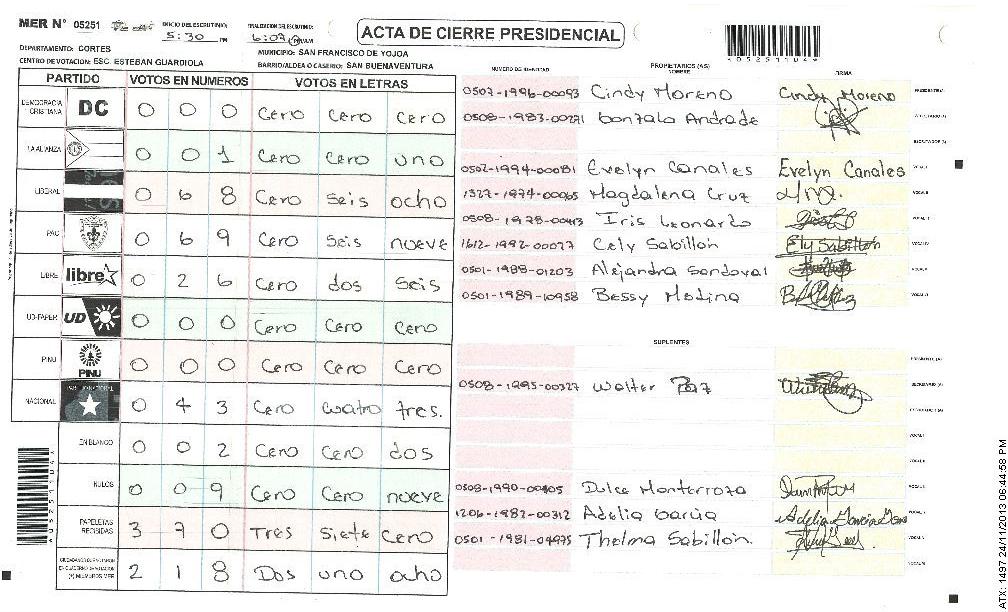 MER N° 05251
INICIO DEL ESCRUTINIO:
5:30 PM
FINALIZACION DEL ESCRUTINIO:
6:07
ACTA DE CIERRE PRESIDENCIAL
*05251104*
DEPARTAMENTO: CORTES
MUNICIPIO: SAN FRANCISCO DE YOJOA
CENTRO DE VOTACION: ESC. ESTEBAN GUARDIOLA
BARRIO/ALDEA O CASERIO: SAN BUENAVENTURA
PARTIDO VOTOS EN NUMEROS VOTOS EN LETRAS
DEMOCRACIA CRISTIANA DC 0 0 0 Cero Cero Cero
LA ALIANZA 0 0 1 Cero Cero uno
LIBERAL 0 6 8 Cero Seis ocho
PAC 0 6 9 Cero Seis nueve
LIBRE libre 0 2 6 Cero dos Seis
UD-FAPER UD 0 0 0 Cero Cero Cero
PINU PINU 0 0 0 Cero Cero Cero
NACIONAL 0 4 3 Cero cuatro tres.
EN BLANCO 0 0 2 Cero Cero dos
NULOS 0 0 9 Cero Cero nueve
PAPELETAS RECIBIDAS 3 7 0 Tres Siete Cero
2 1 8 Dos uno ocho
NUMERO DE IDENTIDAD PROPIETARIOS (AS) NOMBRE FIRMA
Cindy Moreno Cindy Moreno PRESIDENTE(A)
Gonzalo Andrade SECRETARIO (A)
ESCRUTADOR (A)
Evelyn Canales Evelyn Canales VOCAL I
Magdalena Cruz VOCAL II
Iris Leonardo VOCAL III
1612-1992-00077 Cely Sabillon Ely Sabillon VOCAL IV
0501-1988-01203 Alejandra Sandoval VOCAL V
0501-1989-10958 Bessy Medina VOCAL VI
SUPLENTES
PRESIDENTE (A)
0508-1995-00327 Walter Paz SECRETARIO (A)
ESCRUTADOR (A)
VOCAL I
VOCAL II
Dulce Monterroza VOCAL III
1206-1982-00312 Adelia Garcia VOCAL IV
0501-1981-04975 Thelma Sabillon. VOCAL V
VOCAL VI
*05251104*
ATX: 1497 24/11/2013 06:44:58 PM